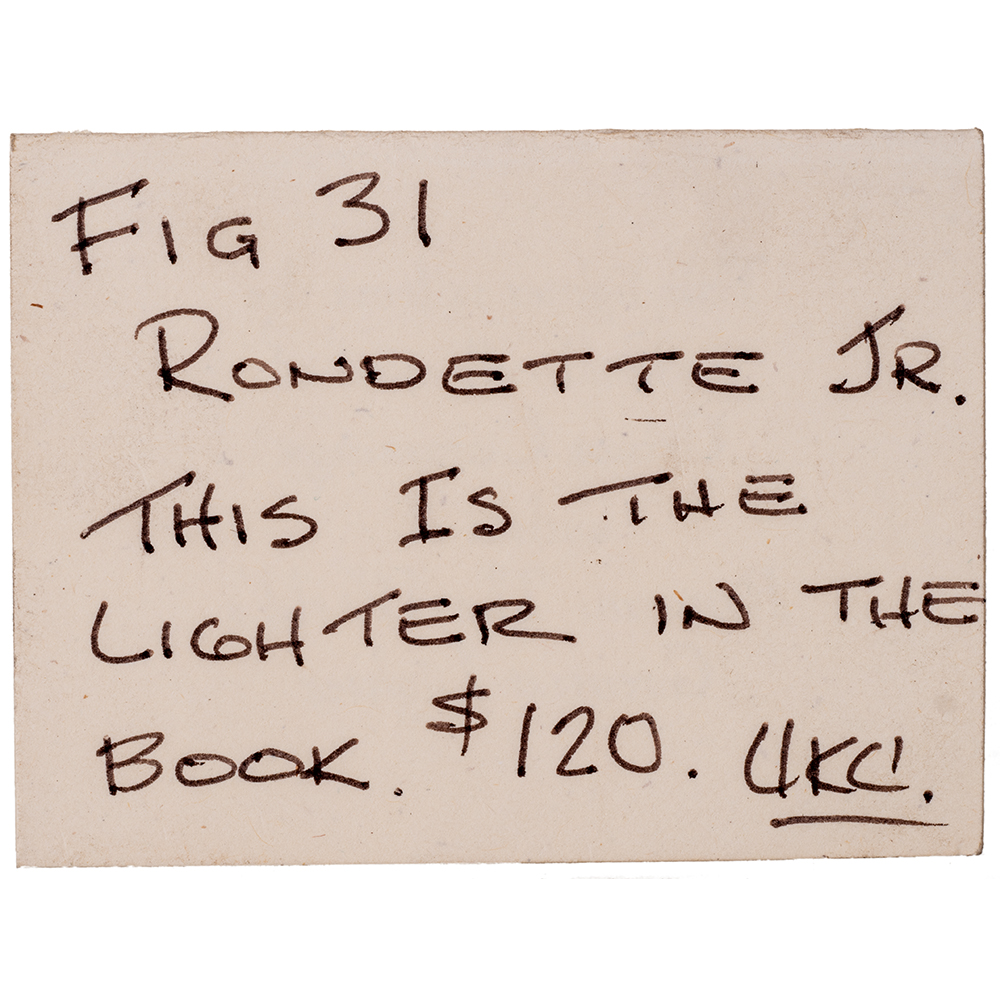 FIG 31
RONDETTE JR.
THIS IS THE
LIGHTER IN THE
BOOK. $120.